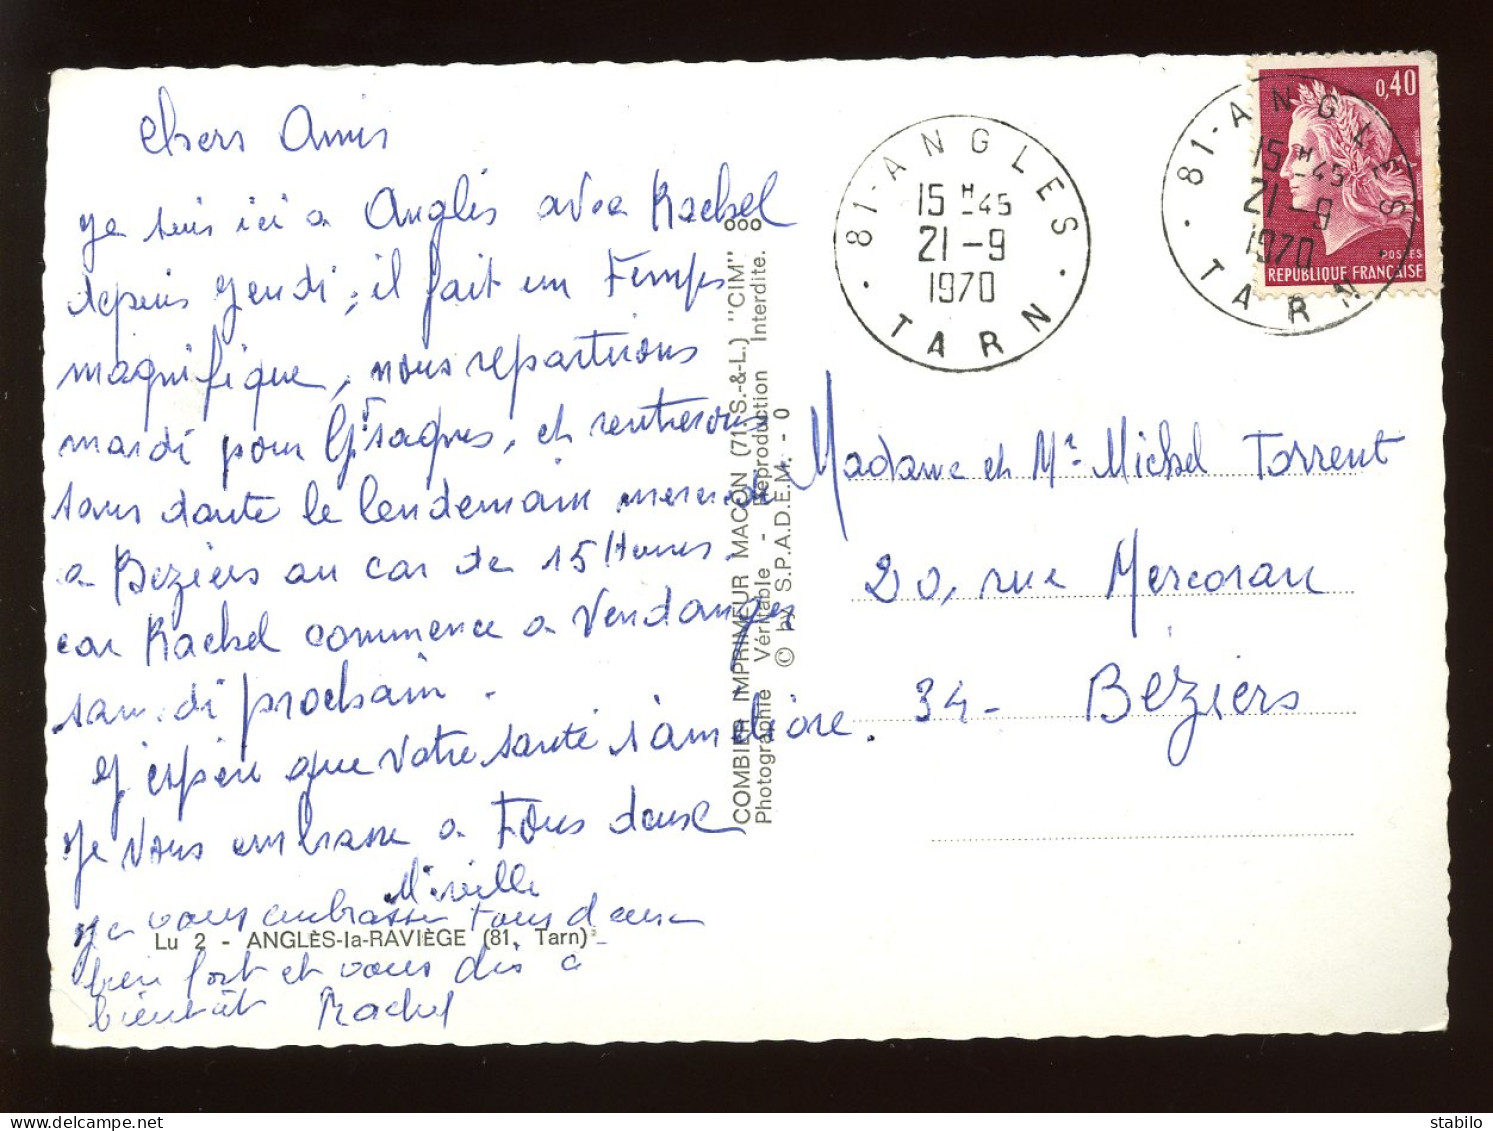 Chers Amis
Je suis ici a Anglès avec Rachel
depuis Jeudi, il fait un Temps
magnifique, nous repartirons
mardi pour
, et rentrerons
sans doute le lendemain mercredi
a Béziers au car de 15 Heures.
car Rachel commence a Vendanger
samedi prochain.
J'espère que votre santé s'améliore.
Je vous embrasse a Tous deux
Mireille
Je vous embrasse tous deux
bien fort et vous dis à
bientôt Rachel
Lu 2 - ANGLÈS-la-RAVIÈGE (81. Tarn)
COMBIER IMPRIMEUR MACON (71 S.-&-L.) "CIM"
Photographie Véritable - Reproduction Interdite.
© by S.P.A.D.E.M. - 0
81-ANGLES
15 H -45
21 -9
1970
TARN
81-ANGLES
15 H -45
21 -9
1970
TARN
0,40
POSTES
REPUBLIQUE FRANÇAISE
Madame et Mr Michel Torrent
20, rue Mercoran
34- Béziers
stabilo